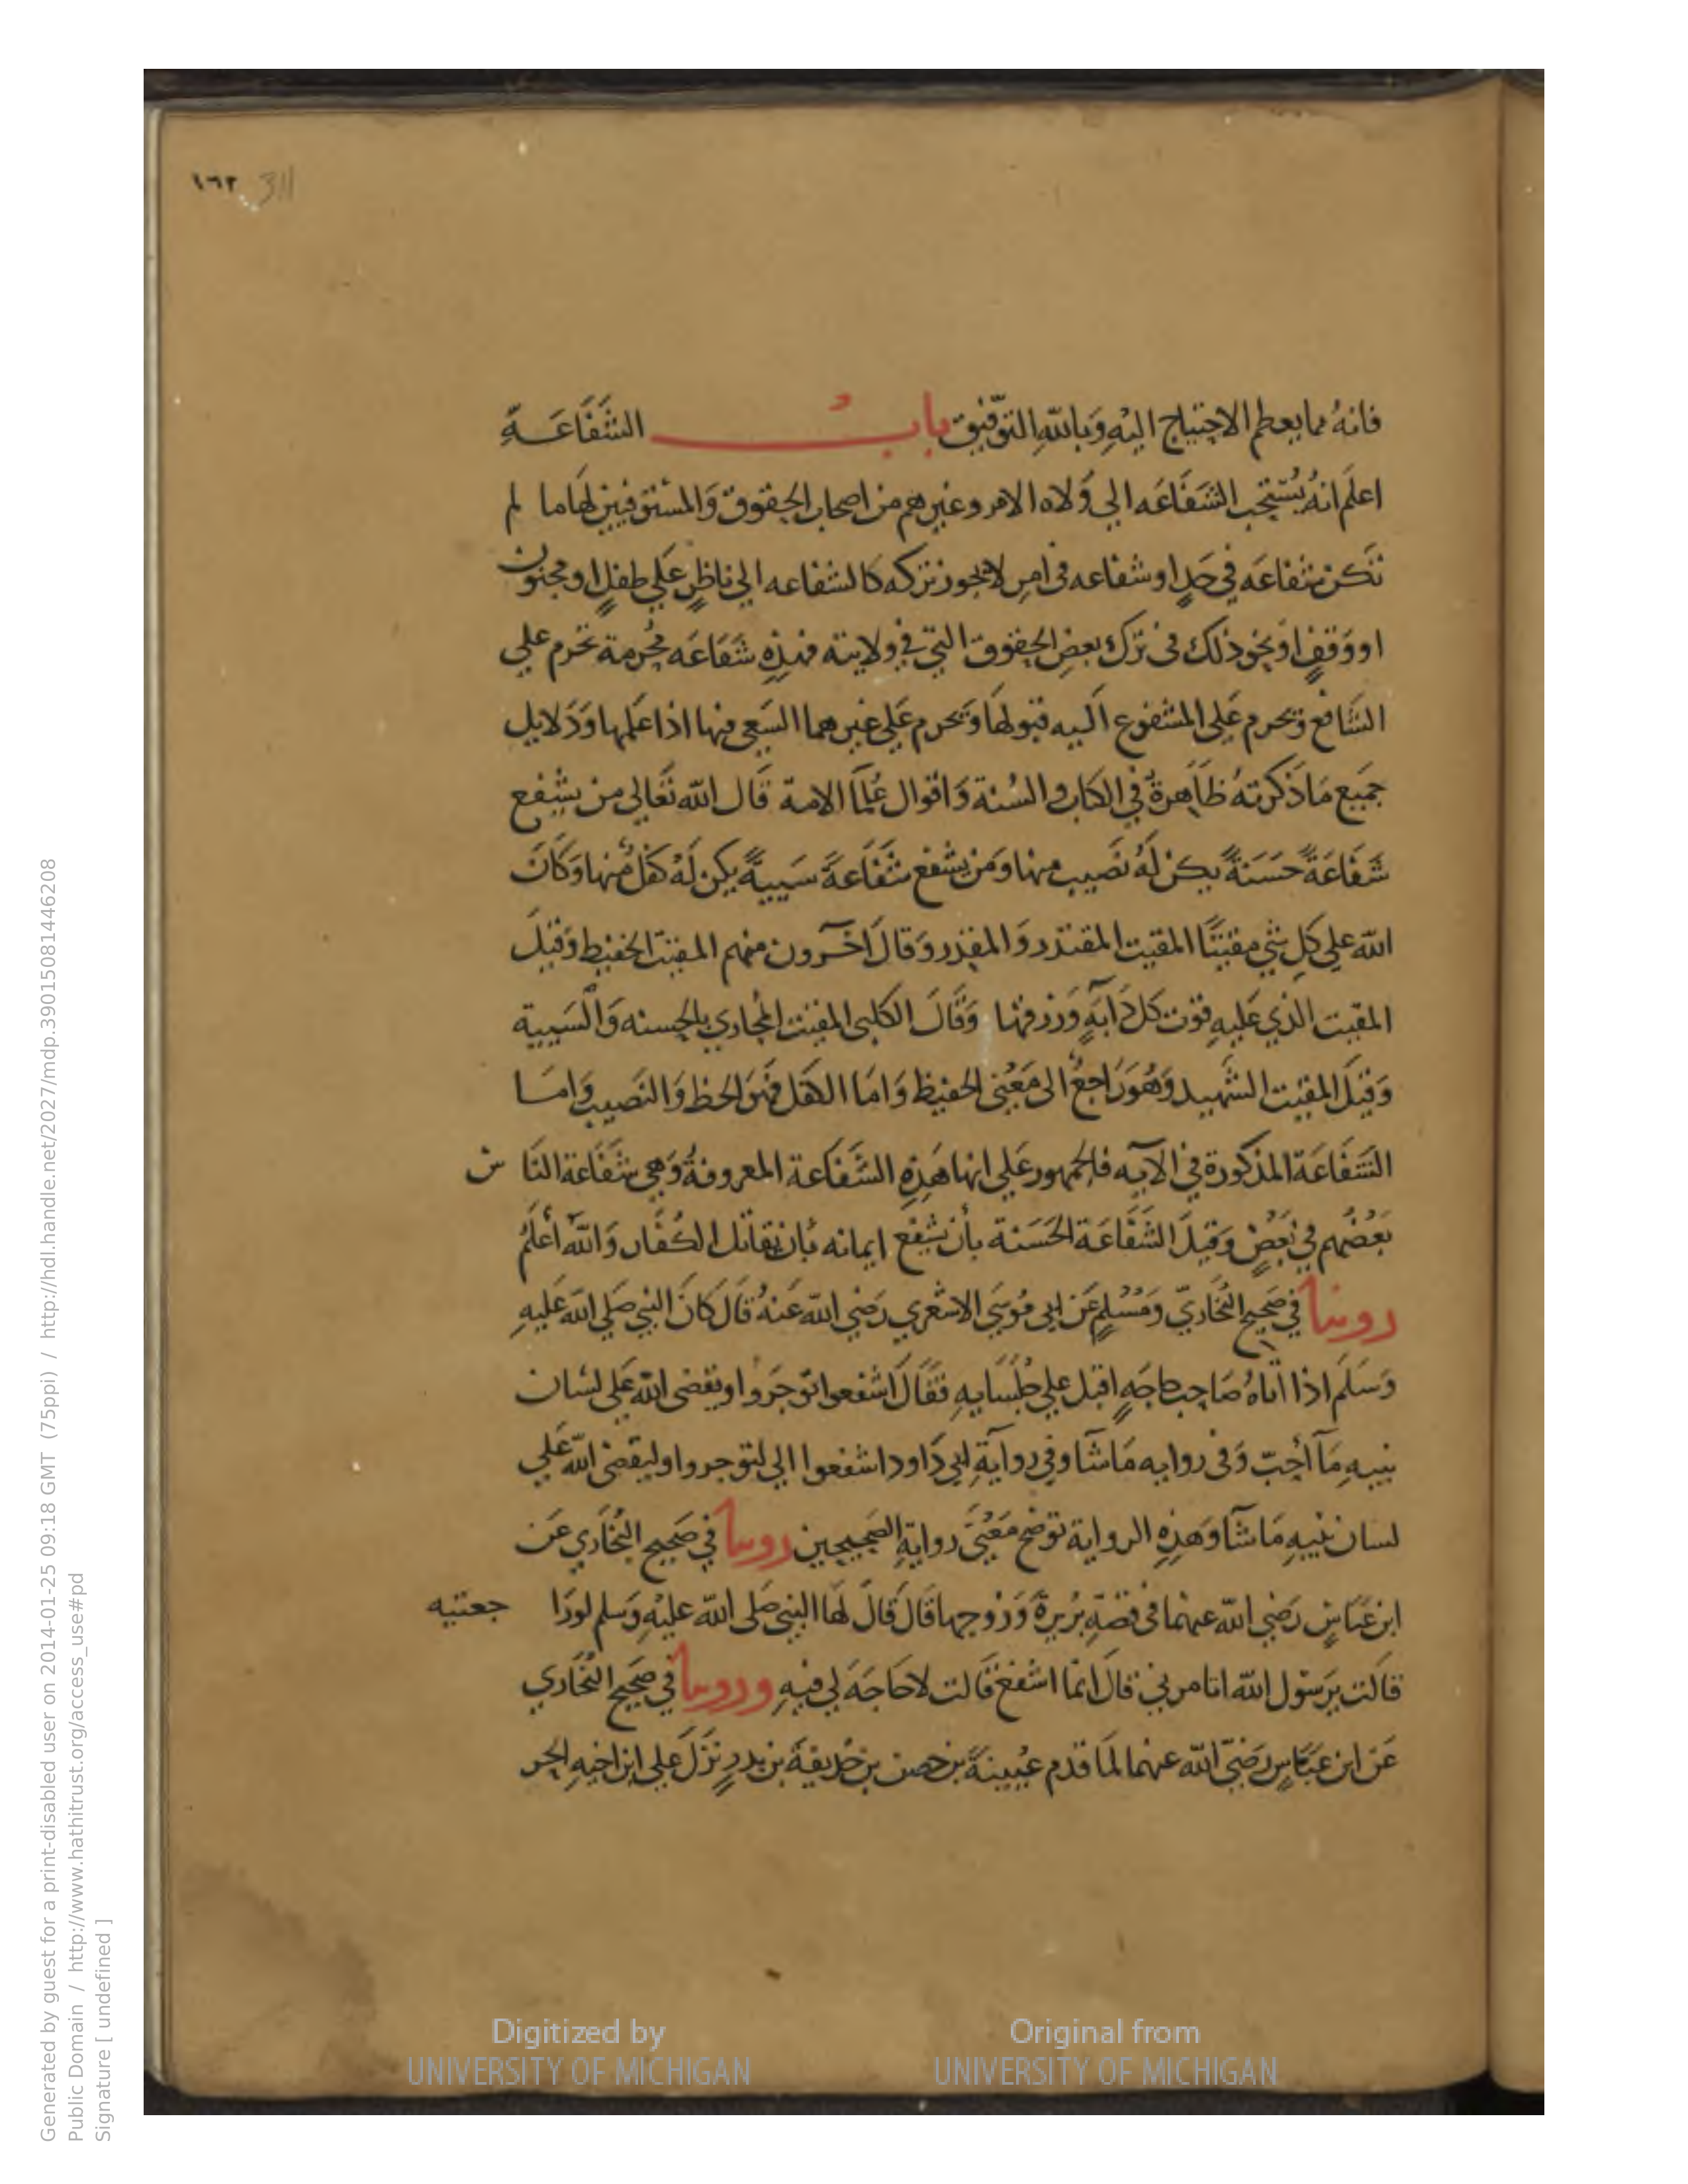 ١٦٢ 311
فانهُ مما يعظم الاحتياج اليْهِ وَبالله التوّفيق بابُ الشَفَاعَةِ
اعلَم انهُ يُسْتحب الشَفَاعَه الي وُلاه الامر وغيرهم من اصحاب الحقوق وَالمستوفيين لهَا ما لم
تكن شفاعَه في حَدٍ او شفاعه فى امرٍ لا يجوز تركه كالشفاعه الي ناظرٍ علي طفلٍ او مجنون
او وَقفٍ اوْ نحو ذلك فى ترك بعضِ الحقوق التي في ولايته فهذِهِ شَفَاعَه مُحرمة تحرم علي
الشَافع وَتحرم عَلي المشفوع اليه قبولهَا وَيَحرم عَلي غيرهما السَعي فيها اذا علمها وَدَلايل
جميَع مَا ذَكرتهُ ظَاهِرةٌ في الكتاب والسُنة وَاقوال عُلمَآ الامة قَال الله تَعَالي من يشْفع
شَفَاعَةً حَسَنَةً يكن لَهُ نَصيب منها وَمَن يشْفع شَفَاعَةً سَيِيةً يكن لَهُ كفلٌ منها وَكَانَ
الله علي كلِ شيٍ مقيتًا المقيت المقتدر وَالمقدر وَقالَ آخَرون منهم المقيت الحفيظ وَقيلَ
المقيت الذي عَليهِ قوْت كل دَآبَةٍ وَرزقها وَقَالَ الكلبى المقيت المجازي بالحسنه وَالسَيِية
وَقيلَ المقيت الشَهيد وَهُوَ رَاجعٌ الى مَعْنى الحفيظ وَامَا الكفل فهوَ الحظ وَالنَصيب وَامَا
الشَفَاعَة المذكورة في الآيه فالجمهور علي انها هَذِهِ الشَفَاعة المعروفةُ وَهي شفَاعة النَا س
بَعْضُهم في بَعْضٍ وَقيلَ الشَفَاعَة الحَسَنة بأن يشْفع ايمانه بأن يقاتل الكفَار وَالله أعلَمُ
روينا في صَحيح البُخَاريّ وَمُسْلِمٍ عَن ابي مُوسَي الاشعري رَضي الله عَنهُ قَالَ كَانَ النبي صَلي الله عَليهِ
وَسَلم اذا اتاهُ صَاحِب حاجَهٍ اقبل علي جُلَسَايهِ فقَالَ اشفعوا توجَروا ويقضى الله علي لسَان
نبيهِ مَآ أحَبّ وَفى روايه مَا شآ وفي روايَةِ ابي دَاود اشفعوا الي لتوجروا وليقضى الله علي
لسان نبيهِ مَا شآ وَهَذِهِ الرواية توَضح مَعْنَى روايةِ الصَحيحين روينا في صَحيح البُخَاري عَن
ابن عَبَاسٍ رَضي الله عنهما فى قصّةِ بَرْيرةَ وَزوجها قَالَ قَالَ لهَا النبي صَلى الله عَليهِ وَسلم لو رَا جعتيه
قالت يَرسُول الله اتامرني قالَ انما اشفع قَالت لا حَاجَهَ لي فيهِ وروينا في صَحيح البُخَاري
عَن ابن عَبَاسٍ رَضيَ الله عنهما لمَا قدم عُيينَةُ بن حصن بن حُذيفَةَ بن بدرٍ نَزَلَ علي ابن اخيهِ الحر
Digitized by UNIVERSITY OF MICHIGAN
Original from UNIVERSITY OF MICHIGAN
Generated by guest for a print-disabled user on 2014-01-25 09:18 GMT (75ppi) / http://hdl.handle.net/2027/mdp.39015081446208
Public Domain / http://www.hathitrust.org/access_use#pd
Signature [ undefined ]